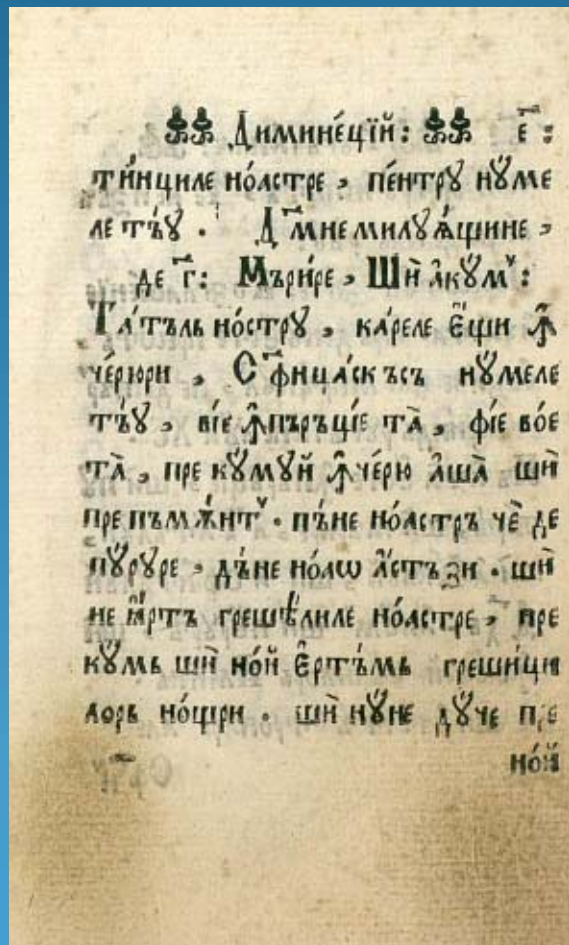 Диминéцїй: є҃:
тинциле но́астре, пе́нтрꙋ нꙋ́ме
ле тъ́ꙋ. Дм҃не милꙋꙗ́щине,
де г҃: Мърі́ре, Шѝ акꙋ́мꙋ:
Та́тъль но́стрꙋ, ка́реле є́щи ꙟ҆
че́рюри, Сфинца́скъсъ нꙋ́меле
тъ́ꙋ, ві́е ꙟ҆пъръці́е та̀, фі́е во́е
та̀, пре кꙋ́мꙋй ꙟ҆че́рю аша̀ шѝ
пре пъмѫ́нтꙋ. пъ́не но́астръ чѐ де
пꙋ́рꙋре, дъ́не но́аѡ а́стъзи. шѝ
не ꙗ́ртъ грешѣ́лиле но́астре, пре
кꙋмь шѝ но́й є҆ртъ́мь греши́ци
лорь но́щри. шѝ нꙋ́не дꙋ́че пре
но́й